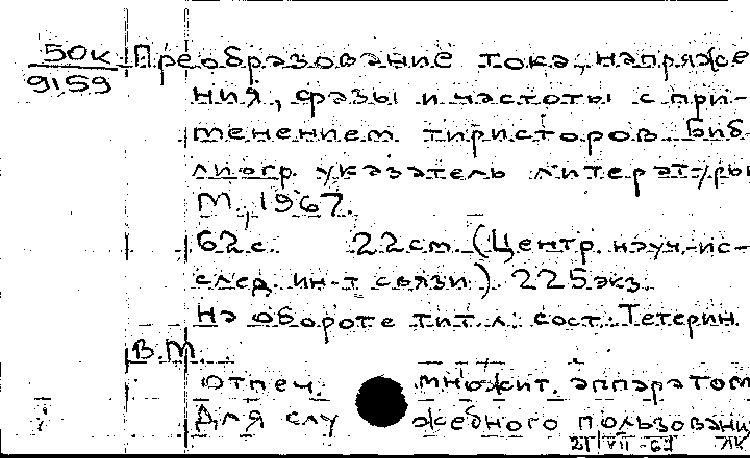 50к Преобразование тока, напряже
9159 ния, фазы и частоты с при-
менением тиристоров. Биб
лиогр. указатель литературы
М., 1967.
62 с. 22 см (Центр. науч.-ис-
след. ин-т связи) 225 экз.
На обороте тит. л. сост.: Тетерин
В.М.
Отпеч. множит. аппаратом
Для служебного пользовани
21 VII-69 ЛК